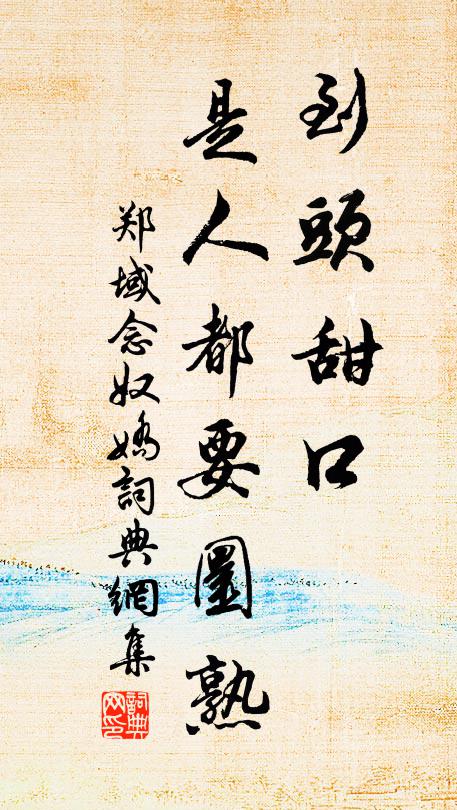 到頭甜口
是人都要圖熟
郑域念奴嬌詞典網集
詞典
网印